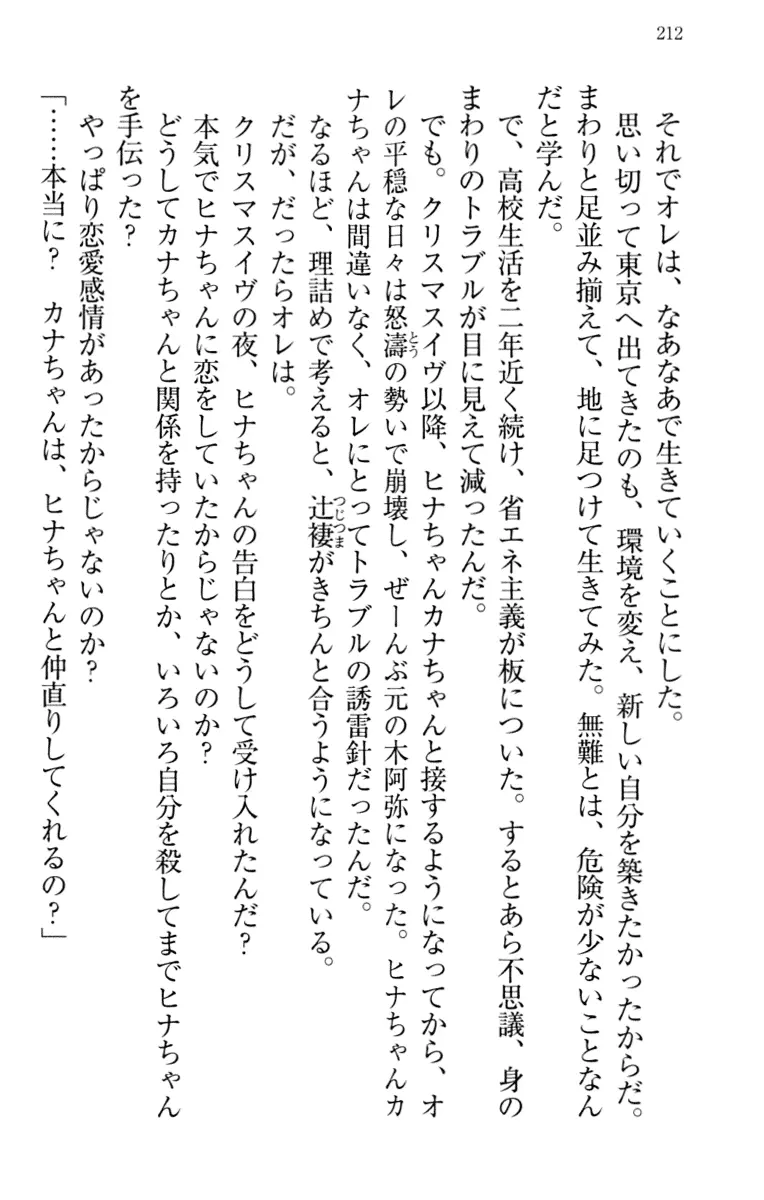 212
それでオレは、なあなあで生きていくことにした。
思い切って東京へ出てきたのも、環境を変え、新しい自分を築きたかったからだ。
まわりと足並み揃えて、地に足つけて生きてみた。無難とは、危険が少ないことなん
だと学んだ。
で、高校生活を二年近く続け、省エネ主義が板についた。するとあら不思議、身の
まわりのトラブルが目に見えて減ったんだ。
でも。クリスマスイヴ以降、ヒナちゃんカナちゃんと接するようになってから、オ
レの平穏な日々は怒濤の勢いで崩壊し、ぜーんぶ元の木阿弥になった。ヒナちゃんカ
ナちゃんは間違いなく、オレにとってトラブルの誘雷針だったんだ。
なるほど、理詰めで考えると、辻褄がきちんと合うようになっている。
だが、だったらオレは。
クリスマスイヴの夜、ヒナちゃんの告白をどうして受け入れたんだ？
本気でヒナちゃんに恋をしていたからじゃないのか？
どうしてカナちゃんと関係を持ったりとか、いろいろ自分を殺してまでヒナちゃん
を手伝った？
やっぱり恋愛感情があったからじゃないのか？
「……本当に？　カナちゃんは、ヒナちゃんと仲直りしてくれるの？」